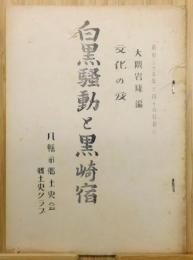 大隈岩雄編
文化の変
白黒騒動と黒崎宿
八幡市郷土史会
郷土史クラブ